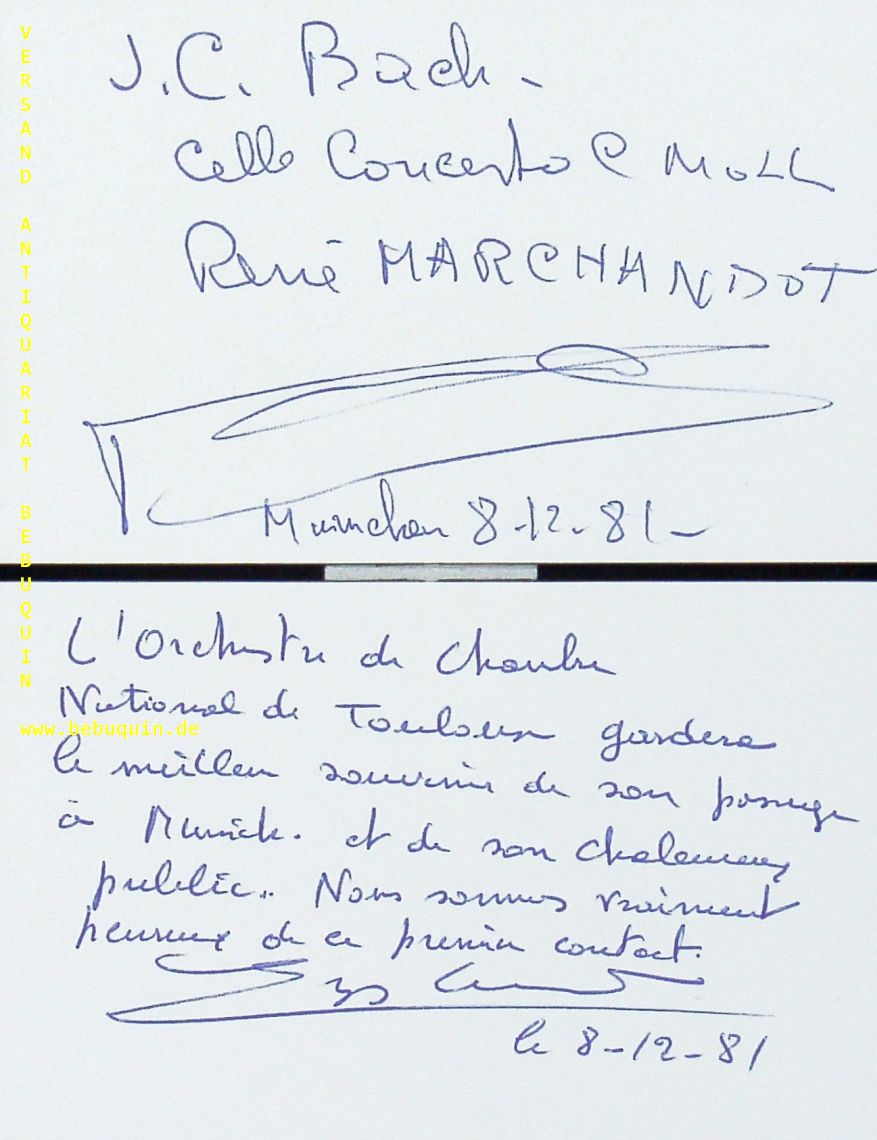 J.C. Bach -
Cello Concerto C MOLL
René MARCHANDOT
München 8-12-81-
L'Orchestre de Chambre
National de Toulouse gardera
le meilleur souvenir de son passage
à Munich. et de son chaleureux
public.. Nous sommes vraiment
heureux de ce premier contact.
le 8-12-81
VERSAND ANTIQUARIAT BEBUQUIN
www.bebuquin.de